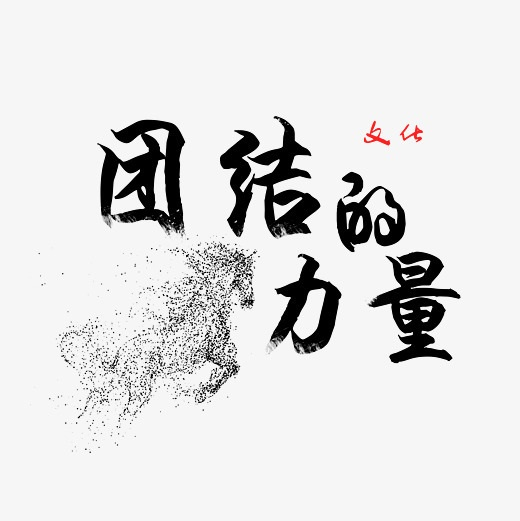 文化
团结的
力量